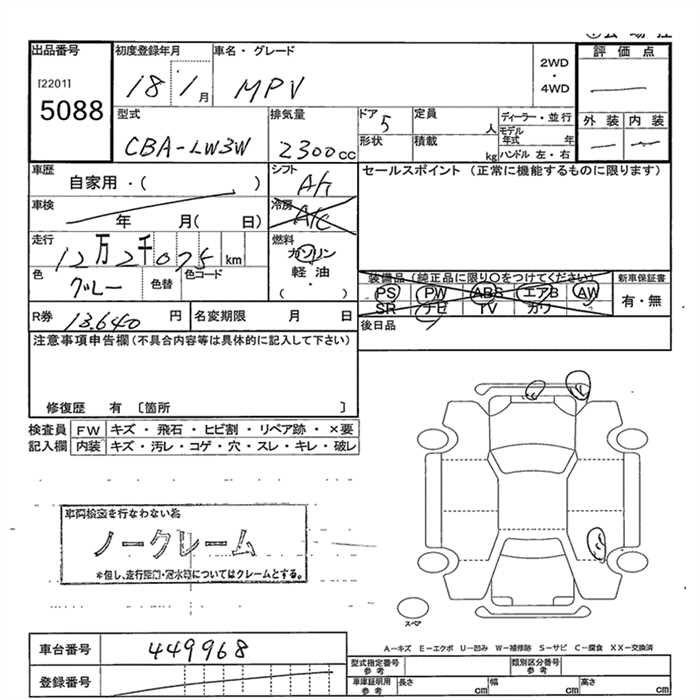 出品番号 初度登録年月 車名・グレード 評価点
[2201]
5088
18 1月 MPV
2WD
・
4WD
型式 排気量 ドア 定員 ディーラー・並行 外装 内装
CBA-LW3W 2300cc 5 人
形状 積載 kg
モデル年式 年
ハンドル 左・右
車歴 シフト セールスポイント (正常に機能するものに限ります)
自家用・( )
A/T
車検 冷房
年 月( 日)
A/C
走行 燃料
12万2千075km
ガソリン
軽油
・
( )
色 色替 色コード
グレー
装備品(純正品に限り〇をつけてください) 新車保証書
PS PW ABS エアB AW
SR ナビ TV カワ
有・無
R券 13,640円 名変期限 月 日
後日品
注意事項申告欄(不具合内容等は具体的に記入して下さい)
修復歴 有 〔箇所 〕
検査員 FW キズ・飛石・ヒビ割・リペア跡・×要
記入欄 内装 キズ・汚レ・コゲ・穴・スレ・キレ・破レ
車両検査を行なわない為
ノークレーム
*但し、走行距離・冠水等についてはクレームとする。
スペア
A-キズ E-エクボ U-凹み W-補修跡 S-サビ C-腐食 XX-交換済
車台番号 449968
登録番号
型式指定番号 参考 類別区分番号 参考
車庫証明用 参考 長さ cm 幅 cm 高さ cm